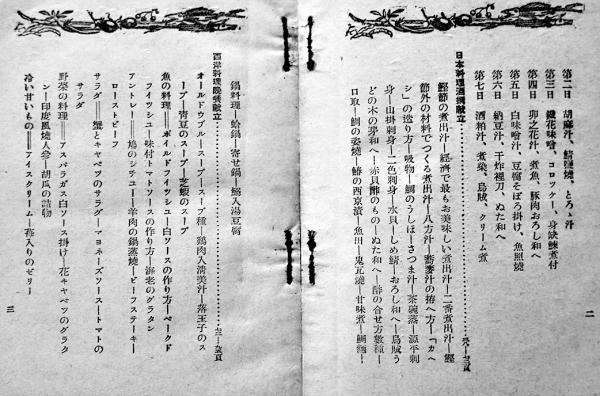 第二日 胡麻汁、鰭鹽燒、とろゝ汁
第三日 纎花味噌、コロツケー、身缺鰊煮付
第四日 卯之花汁、煮魚、豚肉おろし和へ
第五日 白味噌汁、豆腐そぼろ掛け、魚照燒
第六日 納豆汁、干炸裡刀、ぬた和へ
第七日 酒粕汁、煮染、烏賊、クリーム煮
日本料理酒撰獻立
鰹節の煮出汁―經濟で最もお美味しい煮出汁―二番煮出汁―鰹
節外の材料でつくる煮出汁―八方汁―蕎麥汁の拵へ方―『カヘ
シ』の造り方―吸物―鯛のうしほ―さつま汁―茶碗蒸―源平刺
身―山掛刺身―二色刺身―水貝―しめ鯖―おろし和へ―烏賊う
どの木の芽和へ―赤貝酢のもの―ぬた和へ―酢の合せ方數種―
口取―鯛の姿燒―鰆の西京漬―魚田―鬼瓦燒―甘味煮―鯛麵―
二
鍋料理―蛤鍋―寄せ鍋―鰕入湯豆腐
西洋料理晩餐獻立
オールドウブル―スープ―スープ種―鷄肉入淸美汁―落玉子のス
ープ―靑豆のスープ―支那のスープ
魚の料理―ボイルドフイツシユ―白ソースの作り方―ベークド
フイツシユ―味付トマトソースの作り方―海老のグラタン
アントレー―鳩のシチユー―羊肉の鍋蒸燒―ビーフステーキ―
ローストビーフ
サラダ―蟹とキヤベツのサラダ―マヨネーズソース―トマトの
サラダ
野菜の料理―アスパラガス白ソース掛け―花キヤベツのグラタ
ン―印度風燒人參―胡瓜の詰物
冷い甘いもの―アイスクリーム―苺入りのゼリー
三